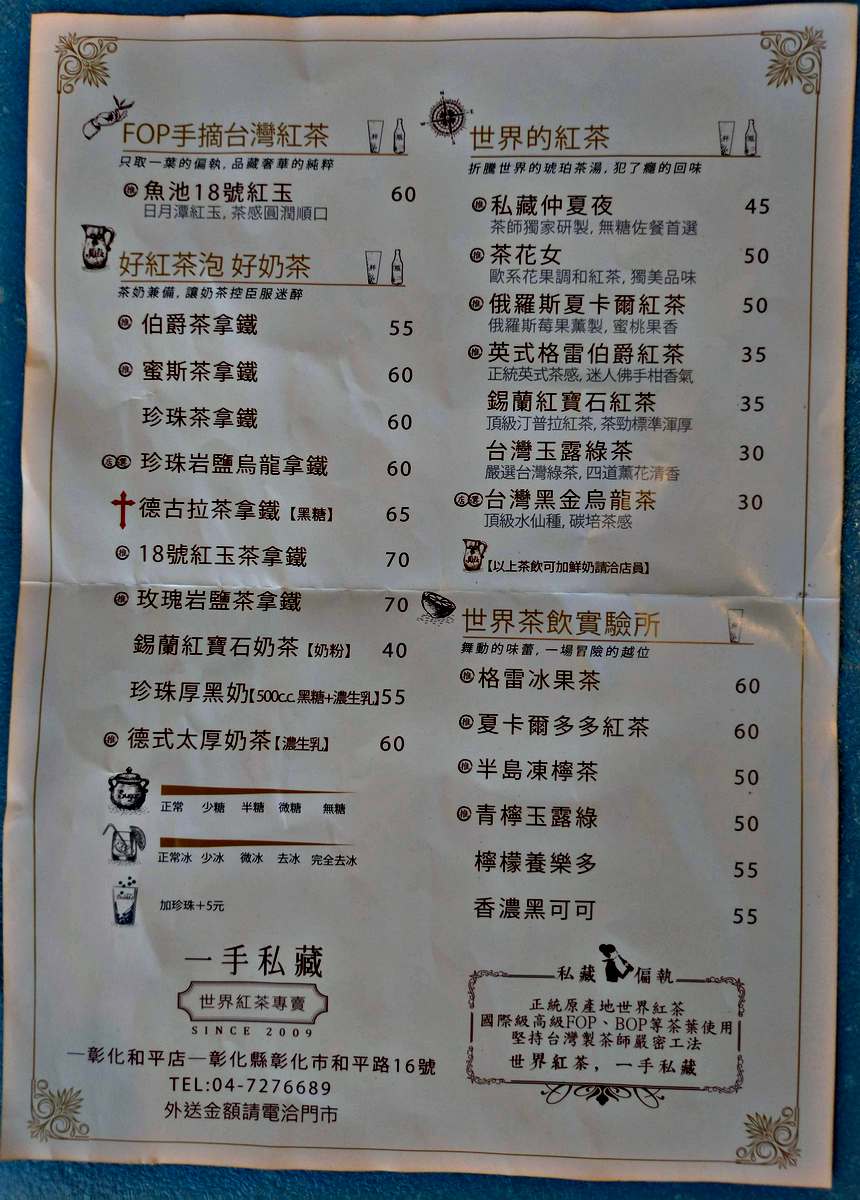 FOP手摘台灣紅茶
只取一葉的偏執,品藏奢華的純粹
推 魚池18號紅玉 60
日月潭紅玉,茶感圓潤順口
好紅茶泡 好奶茶
茶奶兼備,讓奶茶控臣服迷醉
推 伯爵茶拿鐵 55
推 蜜斯茶拿鐵 60
珍珠茶拿鐵 60
店選 珍珠岩鹽烏龍拿鐵 60
德古拉茶拿鐵【黑糖】 65
推 18號紅玉茶拿鐵 70
推 玫瑰岩鹽茶拿鐵 70
錫蘭紅寶石奶茶【奶粉】 40
珍珠厚黑奶【500c.c.黑糖+濃生乳】55
推 德式太厚奶茶【濃生乳】 60
正常 少糖 半糖 微糖 無糖
正常冰 少冰 微冰 去冰 完全去冰
加珍珠+5元
一手私藏
世界紅茶專賣
SINCE 2009
—彰化和平店—彰化縣彰化市和平路16號
TEL:04-7276689
外送金額請電洽門市
世界的紅茶
折騰世界的琥珀茶湯,犯了癮的回味
推 私藏仲夏夜 45
茶師獨家研製,無糖佐餐首選
推 茶花女 50
歐系花果調和紅茶,獨美品味
推 俄羅斯夏卡爾紅茶 50
俄羅斯莓果薰製,蜜桃果香
推 英式格雷伯爵紅茶 35
正統英式茶感,迷人佛手柑香氣
錫蘭紅寶石紅茶 35
頂級汀普拉紅茶,茶勁標準渾厚
台灣玉露綠茶 30
嚴選台灣綠茶,四道薰花清香
店選 台灣黑金烏龍茶 30
頂級水仙種,碳培茶感
【以上茶飲可加鮮奶請洽店員】
世界茶飲實驗所
舞動的味蕾,一場冒險的越位
推 格雷冰果茶 60
推 夏卡爾多多紅茶 60
推 半島凍檸茶 50
推 青檸玉露綠 50
檸檬養樂多 55
香濃黑可可 55
私藏 偏執
正統原產地世界紅茶
國際級高級FOP、BOP等茶葉使用
堅持台灣製茶師嚴密工法
世界紅茶,一手私藏